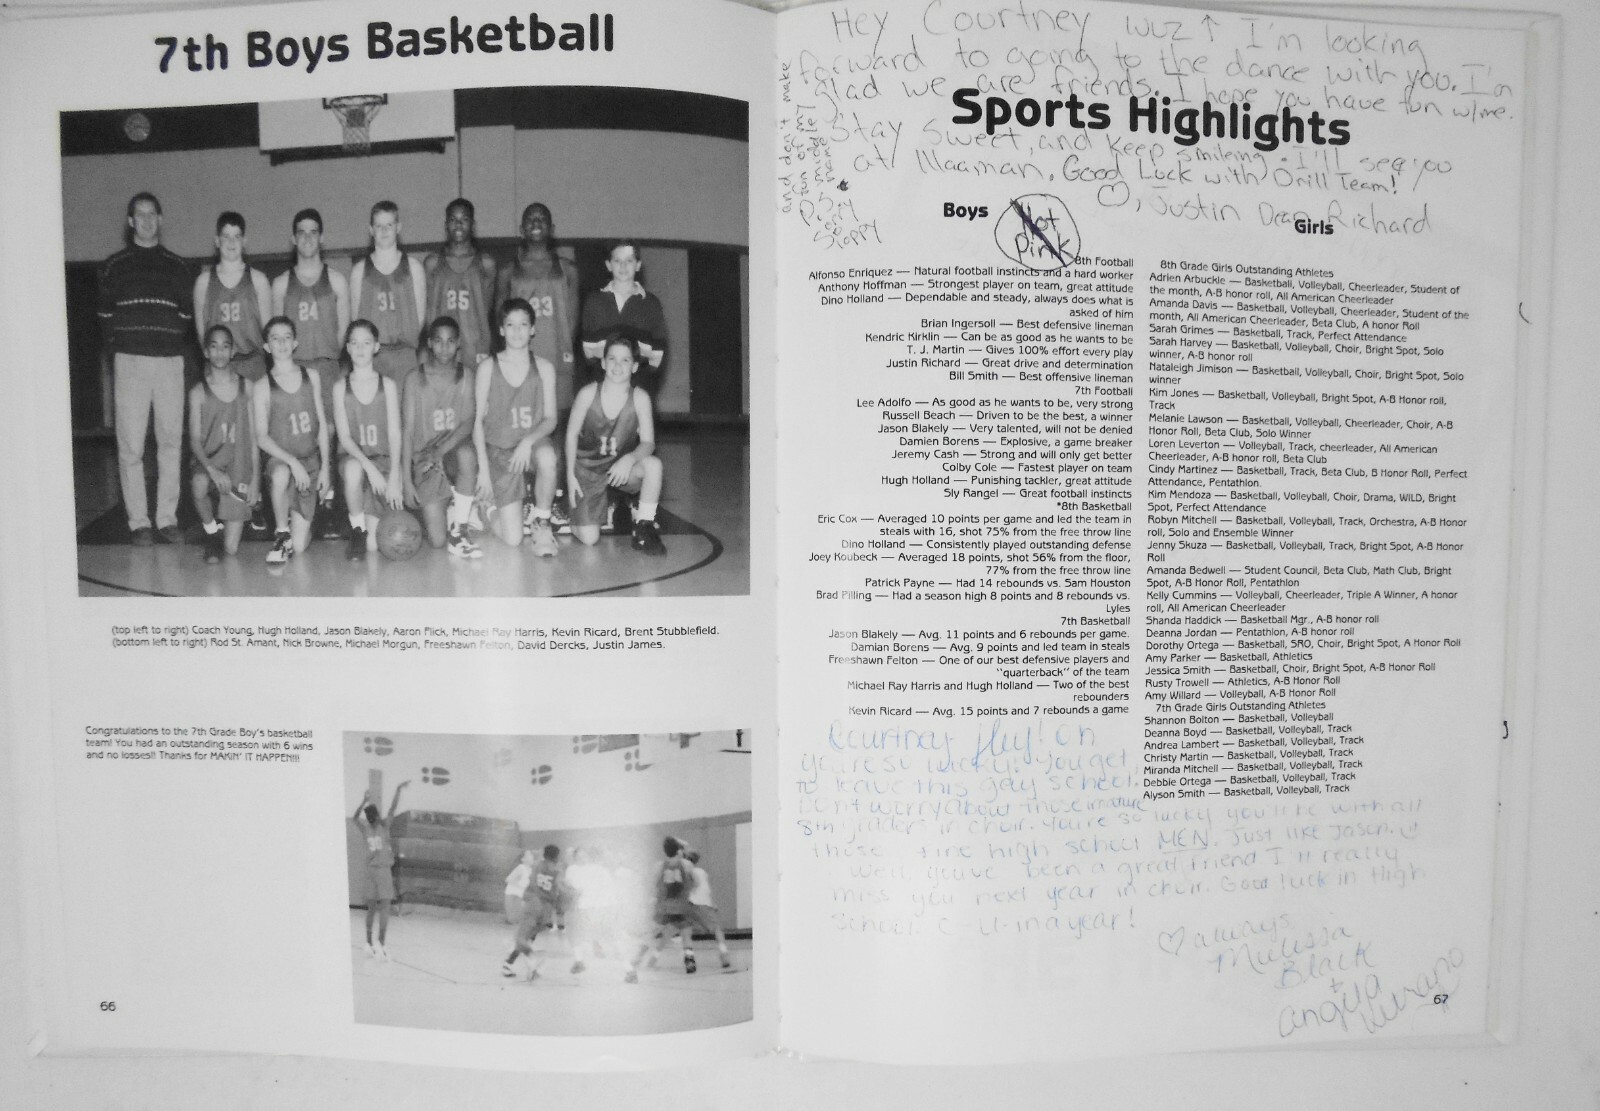 7th Boys Basketball
32
24
31
25
23
14
12
10
22
15
11
(top left to right) Coach Young, Hugh Holland, Jason Blakely, Aaron Flick, Michael Ray Harris, Kevin Ricard, Brent Stubblefield.
(bottom left to right) Rod St. Amant, Nick Browne, Michael Morgun, Freeshawn Felton, David Dercks, Justin James.
Congratulations to the 7th Grade Boy's basketball
team! You had an outstanding season with 6 wins
and no losses!! Thanks for MAKIN' IT HAPPEN!!!
66
Hey Courtney wuz ↑ I'm looking
forward to going to the dance with you. I'm
glad we are friends. I hope you have fun w/me.
Stay sweet, and keep smileing. I'll see you
at Naaman. Good Luck with Drill Team!
♡, Justin Dean Richard
and don't make
fun of my
middle
name
P.S.
Sorry
So
sloppy
Sports Highlights
Boys
Not
Pink
Girls
8th Football
Alfonso Enriquez — Natural football instincts and a hard worker
Anthony Hoffman — Strongest player on team, great attitude
Dino Holland — Dependable and steady, always does what is
asked of him
Brian Ingersoll — Best defensive lineman
Kendric Kirklin — Can be as good as he wants to be
T. J. Martin — Gives 100% effort every play
Justin Richard — Great drive and determination
Bill Smith — Best offensive lineman
7th Football
Lee Adolfo — As good as he wants to be, very strong
Russell Beach — Driven to be the best, a winner
Jason Blakely — Very talented, will not be denied
Damien Borens — Explosive, a game breaker
Jeremy Cash — Strong and will only get better
Colby Cole — Fastest player on team
Hugh Holland — Punishing tackler, great attitude
Sly Rangel — Great football instincts
*8th Basketball
Eric Cox — Averaged 10 points per game and led the team in
steals with 16, shot 75% from the free throw line
Dino Holland — Consistently played outstanding defense
Joey Koubeck — Averaged 18 points, shot 56% from the floor,
77% from the free throw line
Patrick Payne — Had 14 rebounds vs. Sam Houston
Brad Pilling — Had a season high 8 points and 8 rebounds vs.
Lyles
7th Basketball
Jason Blakely — Avg. 11 points and 6 rebounds per game.
Damian Borens — Avg. 9 points and led team in steals
Freeshawn Felton — One of our best defensive players and
"quarterback" of the team
Michael Ray Harris and Hugh Holland — Two of the best
rebounders
Kevin Ricard — Avg. 15 points and 7 rebounds a game
8th Grade Girls Outstanding Athletes
Adrien Arbuckle — Basketball, Volleyball, Cheerleader, Student of
the month, A-B honor roll, All American Cheerleader
Amanda Davis — Basketball, Volleyball, Cheerleader, Student of the
month, All American Cheerleader, Beta Club, A honor Roll
Sarah Grimes — Basketball, Track, Perfect Attendance
Sarah Harvey — Basketball, Volleyball, Choir, Bright Spot, Solo
winner, A-B honor roll
Nataleigh Jimison — Basketball, Volleyball, Choir, Bright Spot, Solo
winner
Kim Jones — Basketball, Volleyball, Bright Spot, A-B Honor roll,
Track
Melanie Lawson — Basketball, Volleyball, Cheerleader, Choir, A-B
Honor Roll, Beta Club, Solo Winner
Loren Leverton — Volleyball, Track, cheerleader, All American
Cheerleader, A-B honor roll, Beta Club
Cindy Martinez — Basketball, Track, Beta Club, B Honor Roll, Perfect
Attendance, Pentathlon.
Kim Mendoza — Basketball, Volleyball, Choir, Drama, WILD, Bright
Spot, Perfect Attendance
Robyn Mitchell — Basketball, Volleyball, Track, Orchestra, A-B Honor
roll, Solo and Ensemble Winner
Jenny Skuza — Basketball, Volleyball, Track, Bright Spot, A-B Honor
Roll
Amanda Bedwell — Student Council, Beta Club, Math Club, Bright
Spot, A-B Honor Roll, Pentathlon
Kelly Cummins — Volleyball, Cheerleader, Triple A Winner, A honor
roll, All American Cheerleader
Shanda Haddick — Basketball Mgr., A-B honor roll
Deanna Jordan — Pentathlon, A-B honor roll
Dorothy Ortega — Basketball, SRO, Choir, Bright Spot, A Honor Roll
Amy Parker — Basketball, Athletics
Jessica Smith — Basketball, Choir, Bright Spot, A-B Honor Roll
Rusty Trowell — Athletics, A-B Honor Roll
Amy Willard — Volleyball, A-B Honor Roll
7th Grade Girls Outstanding Athletes
Shannon Bolton — Basketball, Volleyball
Deanna Boyd — Basketball, Volleyball, Track
Andrea Lambert — Basketball, Volleyball, Track
Christy Martin — Basketball, Volleyball, Track
Miranda Mitchell — Basketball, Volleyball, Track
Debbie Ortega — Basketball, Volleyball, Track
Alyson Smith — Basketball, Volleyball, Track
Courtney Hey! Oh
you're so lucky! You get
to leave this gay school.
Don't worry about those imature
8th graders in choir. You're so lucky you'll be with all
those fine high school MEN. Just like Jason.
Well, youve been a great friend I'll really
miss you next year in choir. Good luck in High
School. C-U-in a year!
♡ always,
Melissa
Black
+
Angela
67